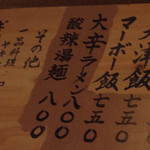 天津飯 七五〇
マーボー飯 七五〇
大辛ラーメン 八〇〇
酸辣湯麺 八〇〇
その他
一品料理